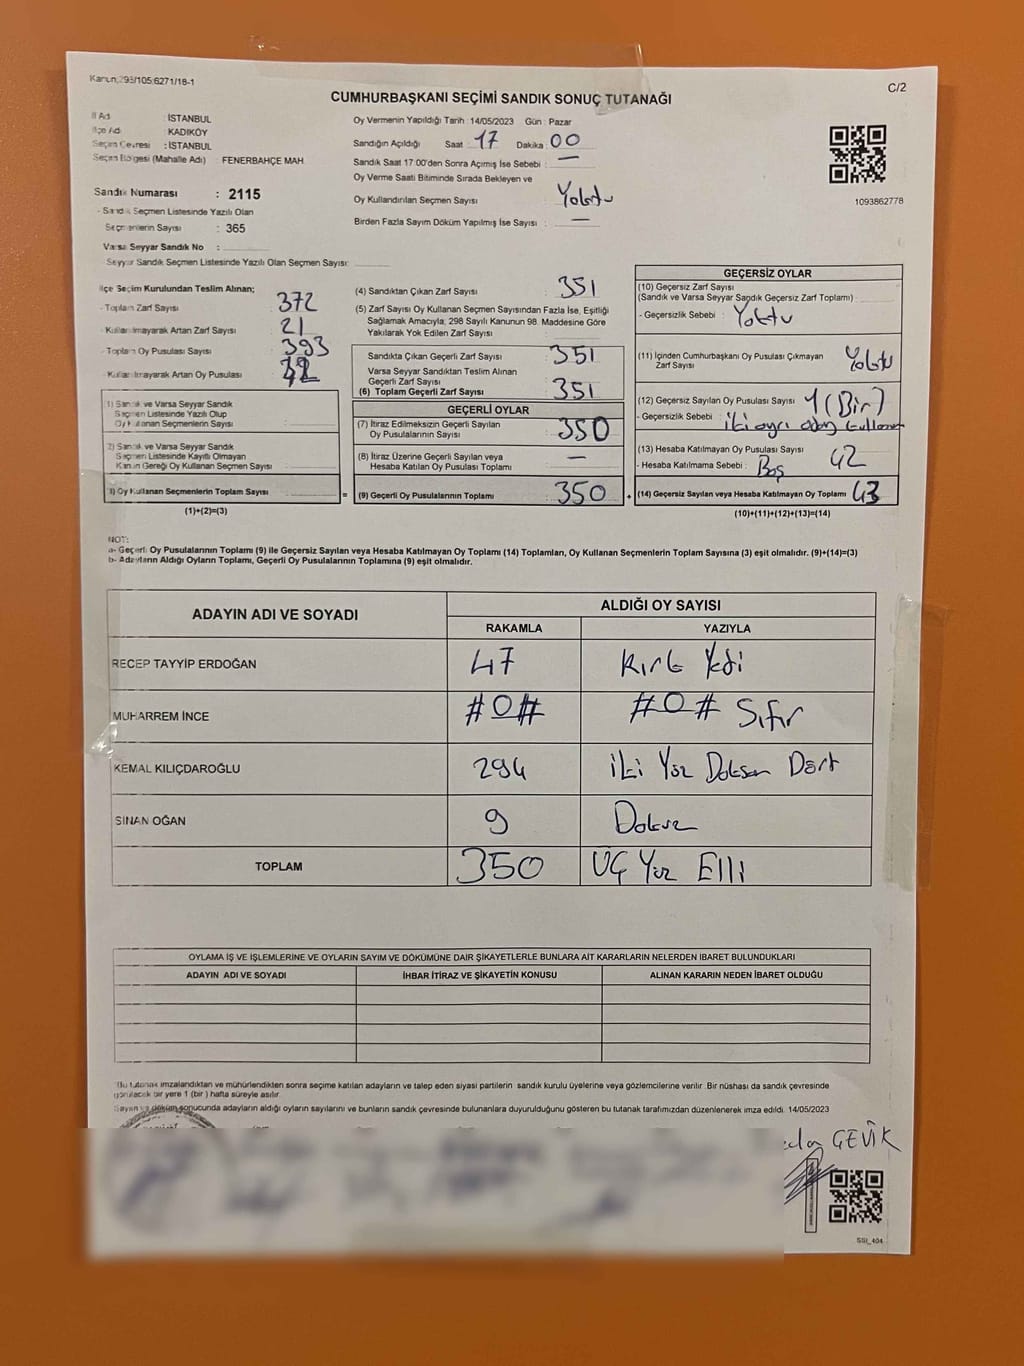 Kanun:298/105;6271/18-1
C/2
CUMHURBAŞKANI SEÇİMİ SANDIK SONUÇ TUTANAĞI
İl Adı : İSTANBUL
İlçe Adı : KADIKÖY
Seçim Çevresi : İSTANBUL
Seçim Bölgesi (Mahalle Adı) : FENERBAHÇE MAH.
Sandık Numarası : 2115
- Sandık Seçmen Listesinde Yazılı Olan
Seçmenlerin Sayısı : 365
Varsa Seyyar Sandık No :
Seyyar Sandık Seçmen Listesinde Yazılı Olan Seçmen Sayısı:
Oy Vermenin Yapıldığı Tarih : 14/05/2023 Gün : Pazar
Sandığın Açıldığı Saat : 17 Dakika : 00
Sandık Saat 17:00'den Sonra Açımış İse Sebebi : —
Oy Verme Saati Bitiminde Sırada Bekleyen ve
Oy Kullandırılan Seçmen Sayısı : Yoktu
Birden Fazla Sayım Döküm Yapılmış İse Sayısı : —
1093862778
İlçe Seçim Kurulundan Teslim Alınan;
- Toplam Zarf Sayısı 372
- Kullanılmayarak Artan Zarf Sayısı 21
- Toplam Oy Pusulası Sayısı 393
- Kullanılmayarak Artan Oy Pusulası
1) Sandık ve Varsa Seyyar Sandık
Seçmen Listesinde Yazılı Olup
Oy Kullanan Seçmenlerin Sayısı :
2) Sandık ve Varsa Seyyar Sandık
Seçmen Listesinde Kayıtlı Olmayan
Kanun Gereği Oy Kullanan Seçmen Sayısı :
3) Oy Kullanan Seçmenlerin Toplam Sayısı : =
(1)+(2)=(3)
(4) Sandıktan Çıkan Zarf Sayısı : 351
(5) Zarf Sayısı Oy Kullanan Seçmen Sayısından Fazla İse, Eşitliği
Sağlamak Amacıyla; 298 Sayılı Kanunun 98. Maddesine Göre
Yakılarak Yok Edilen Zarf Sayısı :
Sandıkta Çıkan Geçerli Zarf Sayısı : 351
Varsa Seyyar Sandıktan Teslim Alınan
Geçerli Zarf Sayısı :
(6) Toplam Geçerli Zarf Sayısı : 351
GEÇERLİ OYLAR
(7) İtiraz Edilmeksizin Geçerli Sayılan
Oy Pusulalarının Sayısı : 350
(8) İtiraz Üzerine Geçerli Sayılan veya
Hesaba Katılan Oy Pusulası Toplamı : —
(9) Geçerli Oy Pusulalarının Toplamı : 350 +
GEÇERSİZ OYLAR
(10) Geçersiz Zarf Sayısı
(Sandık ve Varsa Seyyar Sandık Geçersiz Zarf Toplamı) :
- Geçersizlik Sebebi : Yoktu
(11) İçinden Cumhurbaşkanı Oy Pusulası Çıkmayan
Zarf Sayısı : Yoktu
(12) Geçersiz Sayılan Oy Pusulası Sayısı : 1 (Bir)
- Geçersizlik Sebebi : İki ayrı aday
(13) Hesaba Katılmayan Oy Pusulası Sayısı : 42
- Hesaba Katılmama Sebebi : Boş
(14) Geçersiz Sayılan veya Hesaba Katılmayan Oy Toplamı : 43
(10)+(11)+(12)+(13)=(14)
NOT:
a- Geçerli Oy Pusulalarının Toplamı (9) ile Geçersiz Sayılan veya Hesaba Katılmayan Oy Toplamı (14) Toplamları, Oy Kullanan Seçmenlerin Toplam Sayısına (3) eşit olmalıdır. (9)+(14)=(3)
b- Adayların Aldığı Oyların Toplamı, Geçerli Oy Pusulalarının Toplamına (9) eşit olmalıdır.
ADAYIN ADI VE SOYADI ALDIĞI OY SAYISI
RAKAMLA YAZIYLA
RECEP TAYYİP ERDOĞAN 47 Kırk Yedi
MUHARREM İNCE #0# #0# Sıfır
KEMAL KILIÇDAROĞLU 294 İki Yüz Doksan Dört
SİNAN OĞAN 9 Dokuz
TOPLAM 350 ÜÇ Yüz Elli
OYLAMA İŞ VE İŞLEMLERİNE VE OYLARIN SAYIM VE DÖKÜMÜNE DAİR ŞİKAYETLERLE BUNLARA AİT KARARLARIN NELERDEN İBARET BULUNDUKLARI
ADAYIN ADI VE SOYADI İHBAR İTİRAZ VE ŞİKAYETİN KONUSU ALINAN KARARIN NEDEN İBARET OLDUĞU
Bu tutanak imzalandıktan ve mühürlendikten sonra seçime katılan adayların ve talep eden siyasi partilerin sandık kurulu üyelerine veya gözlemcilerine verilir. Bir nüshası da sandık çevresinde
görülecek bir yere 1 (bir) hafta süreyle asılır.
Sayım ve döküm sonucunda adayların aldığı oyların sayılarını ve bunların sandık çevresinde bulunanlara duyurulduğunu gösteren bu tutanak tarafımızdan düzenlenerek imza edildi. 14/05/2023
ÇEVİK
SSI_404